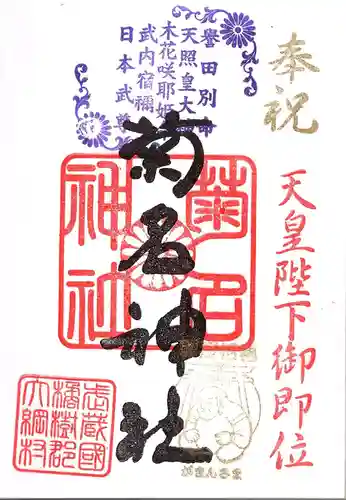 奉祝
天皇陛下御即位
誉田別命
天照皇大神
木花咲耶姫命
武内宿禰
日本武尊
菊名神社
菊名神社
がまんさま
武蔵国
橘樹郡
大綱村